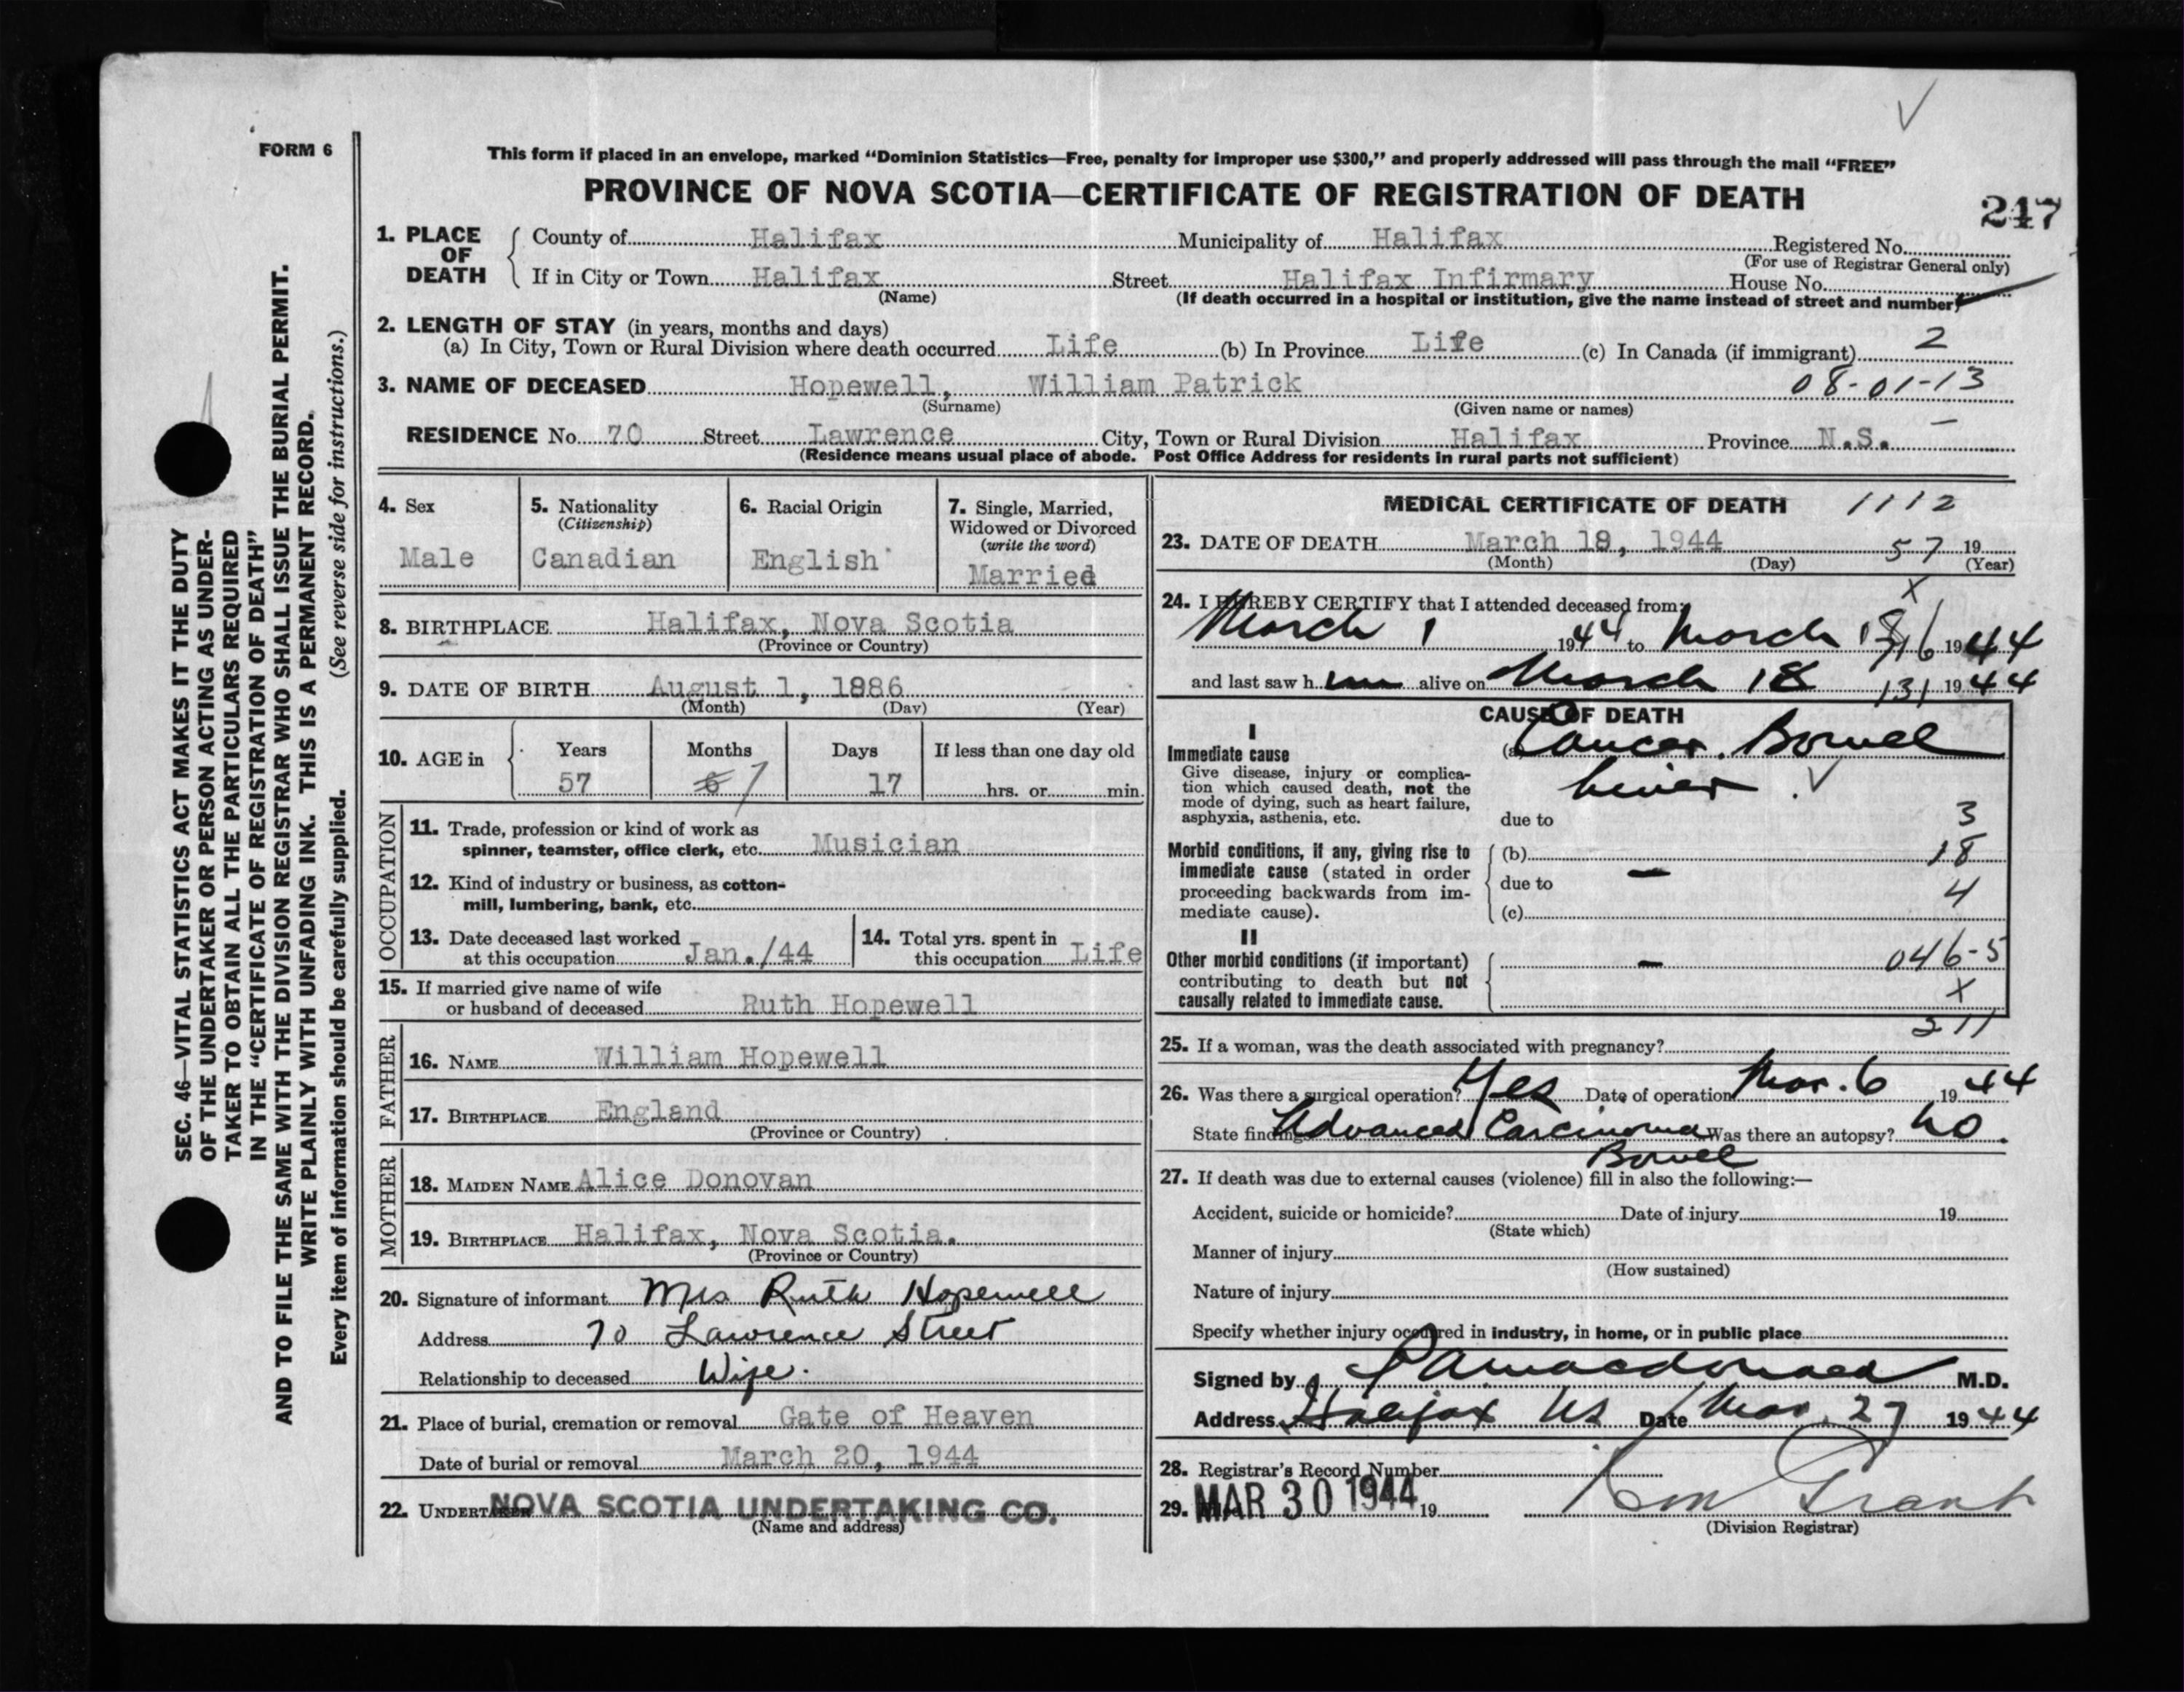 FORM 6
This form if placed in an envelope, marked "Dominion Statistics—Free, penalty for improper use $300," and properly addressed will pass through the mail "FREE"
PROVINCE OF NOVA SCOTIA—CERTIFICATE OF REGISTRATION OF DEATH
247
1. PLACE OF DEATH
County of Halifax Municipality of Halifax Registered No.
(For use of Registrar General only)
If in City or Town Halifax Street Halifax Infirmary House No.
(Name) (If death occurred in a hospital or institution, give the name instead of street and number)
2. LENGTH OF STAY (in years, months and days)
(a) In City, Town or Rural Division where death occurred Life (b) In Province Life (c) In Canada (if immigrant) 2
3. NAME OF DECEASED Hopewell, William Patrick 08-01-13
(Surname) (Given name or names)
RESIDENCE No. 70 Street Lawrence City, Town or Rural Division Halifax Province N.S.
(Residence means usual place of abode. Post Office Address for residents in rural parts not sufficient)
4. Sex
Male
5. Nationality
(Citizenship)
Canadian
6. Racial Origin
English
7. Single, Married,
Widowed or Divorced
(write the word)
Married
8. BIRTHPLACE Halifax, Nova Scotia
(Province or Country)
9. DATE OF BIRTH August 1, 1886
(Month) (Day) (Year)
10. AGE in
Years Months Days If less than one day old
57 6 7 17 hrs. or min.
OCCUPATION
11. Trade, profession or kind of work as
spinner, teamster, office clerk, etc. Musician
12. Kind of industry or business, as cotton-
mill, lumbering, bank, etc.
13. Date deceased last worked
at this occupation Jan./44
14. Total yrs. spent in
this occupation Life
15. If married give name of wife
or husband of deceased Ruth Hopewell
FATHER
16. NAME William Hopewell
17. BIRTHPLACE England
(Province or Country)
MOTHER
18. MAIDEN NAME Alice Donovan
19. BIRTHPLACE Halifax, Nova Scotia.
(Province or Country)
20. Signature of informant Mrs Ruth Hopewell
Address 70 Lawrence Street
Relationship to deceased Wife.
21. Place of burial, cremation or removal Gate of Heaven
Date of burial or removal March 20, 1944
22. UNDERTAKER NOVA SCOTIA UNDERTAKING CO.
(Name and address)
MEDICAL CERTIFICATE OF DEATH 1112
23. DATE OF DEATH March 18, 1944 57 19
(Month) (Day) (Year)
X
24. I HEREBY CERTIFY that I attended deceased from:
March 1 1944 to March 18 1944
and last saw him alive on March 18 131 1944
CAUSE OF DEATH
I
Immediate cause
Give disease, injury or complica-
tion which caused death, not the
mode of dying, such as heart failure,
asphyxia, asthenia, etc.
(a) Cancer. Bowel
Liver
due to 3
Morbid conditions, if any, giving rise to
immediate cause (stated in order
proceeding backwards from im-
mediate cause).
(b) 18
due to — 4
(c)
II
Other morbid conditions (if important)
contributing to death but not
causally related to immediate cause.
— 046-5
X
211
25. If a woman, was the death associated with pregnancy?
26. Was there a surgical operation? Yes Date of operation Mar. 6 1944
State findings Advanced Carcinoma Was there an autopsy? No.
Bowel
27. If death was due to external causes (violence) fill in also the following:—
Accident, suicide or homicide? Date of injury 19
(State which)
Manner of injury
(How sustained)
Nature of injury
Specify whether injury occurred in industry, in home, or in public place
Signed by Macdonald M.D.
Address Halifax NS Date Mar. 27 1944
28. Registrar's Record Number
29. MAR 30 1944 19 Grant
(Division Registrar)
SEC. 46—VITAL STATISTICS ACT MAKES IT THE DUTY
OF THE UNDERTAKER OR PERSON ACTING AS UNDER-
TAKER TO OBTAIN ALL THE PARTICULARS REQUIRED
IN THE "CERTIFICATE OF REGISTRATION OF DEATH"
AND TO FILE THE SAME WITH THE DIVISION REGISTRAR WHO SHALL ISSUE THE BURIAL PERMIT.
WRITE PLAINLY WITH UNFADING INK. THIS IS A PERMANENT RECORD.
Every item of information should be carefully supplied. (See reverse side for instructions.)